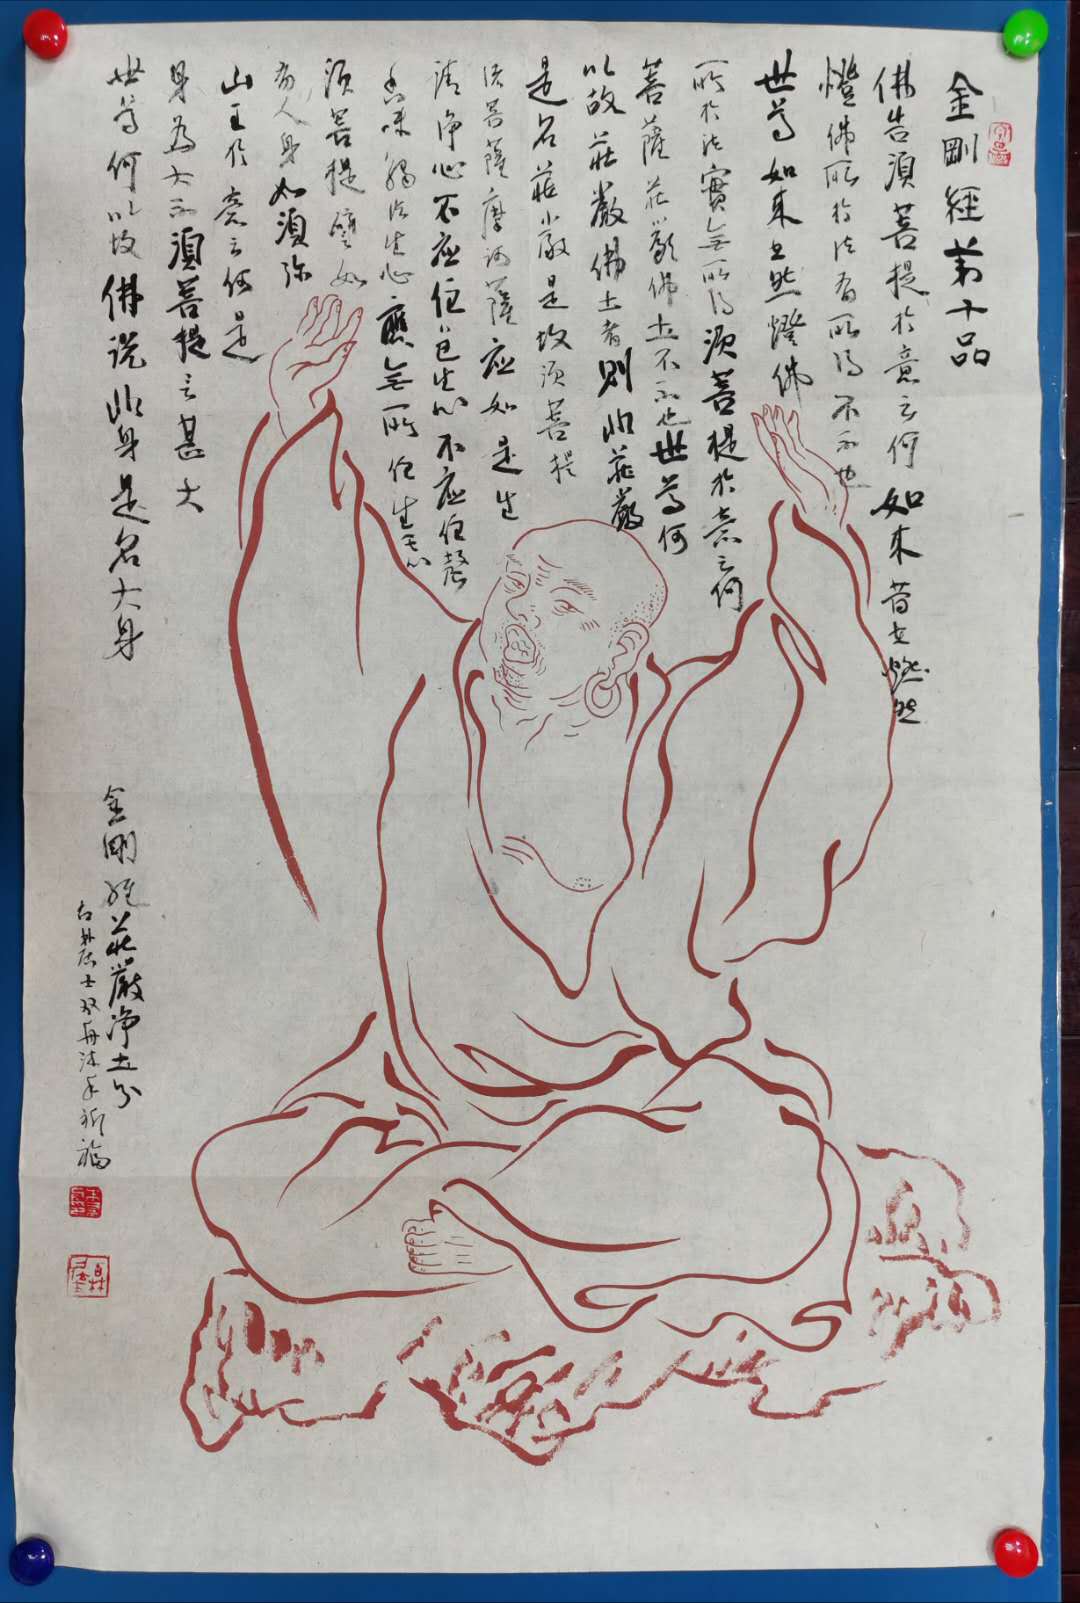 金剛經第十品
佛告須菩提於意云何如來昔在燃
燈佛所於法有所得不不也
世尊如來在然燈佛
所於法實無所得須菩提於意云何
菩薩莊嚴佛土不不也世尊何
以故莊嚴佛土者則非莊嚴
是名莊嚴是故須菩提
諸菩薩摩訶薩應如是生
清淨心不應住色生心不應住聲
香味觸法生心應無所住生其心
須菩提譬如
有人身如須弥
山王於意云何是
身為大不須菩提言甚大
世尊何以故佛说非身是名大身
金剛經莊嚴淨土分
居士双舟沐手祈福